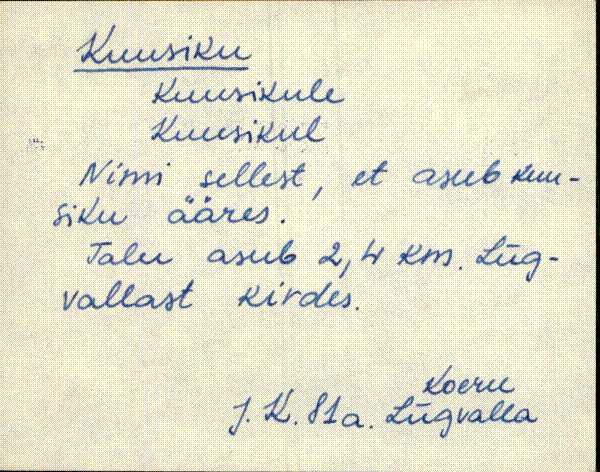 Kuusiku
Kuusikule
Kuusikul
Nimi sellest, et asub kuu-
siku ääres.
Talu asub 2,4 km. Lüg-
vallast kirdes.
Koeru
J. K. 81a. Lügvalla